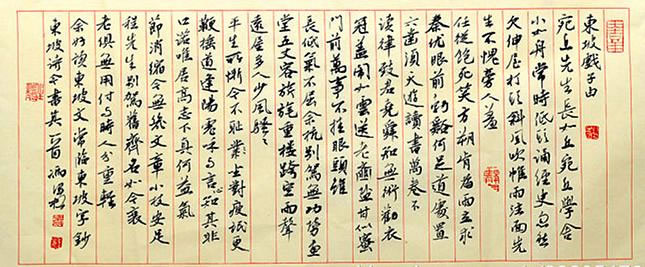 東坡戲子由
宛丘先生長如丘宛丘學舍
小如舟常時低頭誦經史忽然
欠伸屋打頭斜風吹帷雨注面先
生不愧旁人羞
任從飽死笑方朔肯為雨立求
秦优眼前勃谿何足道處置
六鑿須天遊讀書萬卷不
讀律致君堯舜知無術勸农
冠蓋鬧如雲送老虀鹽甘似蜜
門前萬事不挂眼頭雖
長低氣不屈余杭別駕無功勞畫
堂五丈容旂旄重樓跨空雨聲
遠屋多人少風騷騷
平生所慚今不恥坐對疲氓更
鞭箠道逢陽虎呼与言心知其非
口諾唯居高志下真何益氣
節消縮今無幾文章小技安足
程先生別駕舊齊名如今衰
老俱無用付与時人分重輕
余好讀東坡文常臨東坡字鈔
東坡詩今書其一首